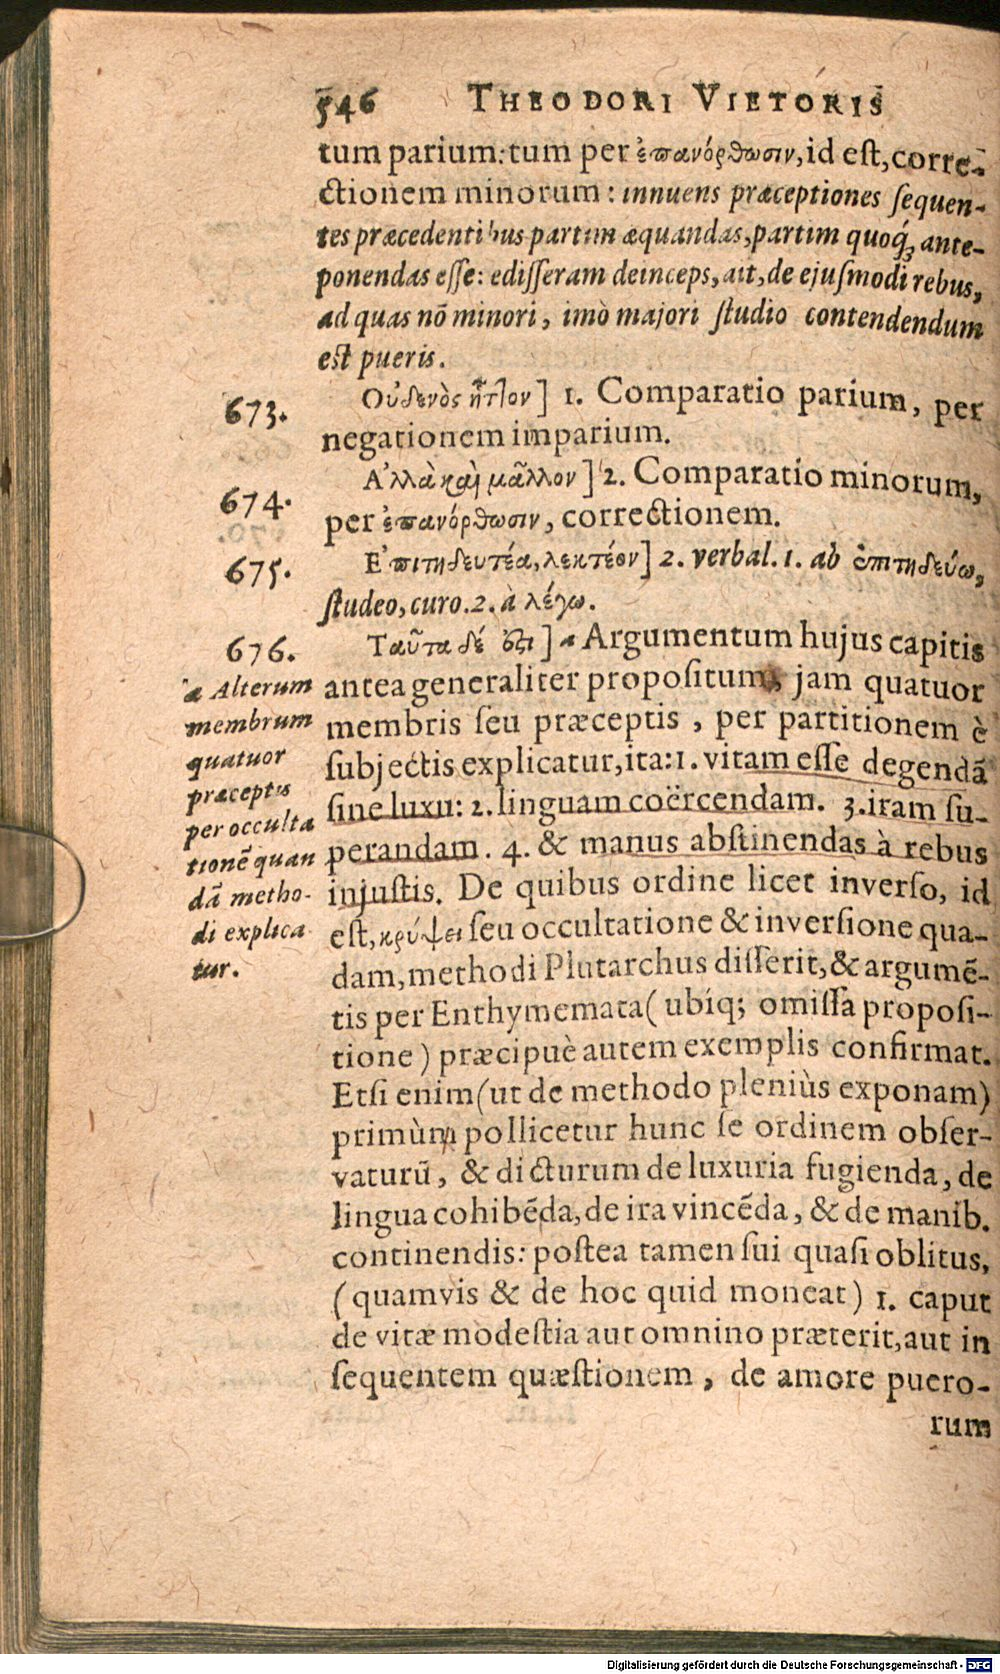 546 THEODORI VIETORIS
tum parium: tum per ἐπανόρθωσιν, id est, corre-
ctionem minorum: innuens præceptiones sequen-
tes præcedentibus partim æquandas, partim quoq́ ante-
ponendas esse: edisseram deinceps, ait, de ejusmodi rebus,
ad quas nō minori, imò majori studio contendendum
est pueris.
673.
Οὐδενὸς ἧττον] 1. Comparatio parium, per
negationem imparium.
674.
Α'λλὰ καὶ μᾶλλον] 2. Comparatio minorum,
per ἐπανόρθωσιν, correctionem.
675.
Ε'πιτηδευτέα, λεκτέον] 2. verbal. 1. ab ἐπιτηδεύω,
studeo, curo. 2. à λέγω.
676.
Ταῦτα δέ ἐστι] a Argumentum hujus capitis
antea generaliter propositum, jam quatuor
membris seu præceptis, per partitionem è
subjectis explicatur, ita: 1. vitam esse degendā
sine luxu: 2. linguam coërcendam. 3. iram su-
perandam. 4. & manus abstinendas à rebus
injustis. De quibus ordine licet inverso, id
est, κρύψει seu occultatione & inversione qua-
dam, methodi Plutarchus disserit, & argumē-
tis per Enthymemata (ubíq; omissa proposi-
tione) præcipuè autem exemplis confirmat.
Etsi enim (ut de methodo pleniùs exponam)
primùm pollicetur hunc se ordinem obser-
vaturū, & dicturum de luxuria fugienda, de
lingua cohibēda, de ira vincēda, & de manib.
continendis: postea tamen sui quasi oblitus,
(quamvis & de hoc quid moneat) 1. caput
de vitæ modestia aut omnino præterit, aut in
sequentem quæstionem, de amore puero-
rum
a Alterum
membrum
quatuor
præceptis
per occulta
tionē quan
dā metho-
di explica
tur.
Digitalisierung gefördert durch die Deutsche Forschungsgemeinschaft - DFG